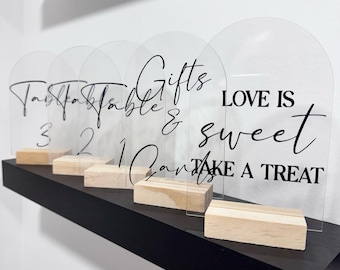 Table
3
Table
2
Table
1
Gifts
&
Cards
LOVE IS
sweet
TAKE A TREAT